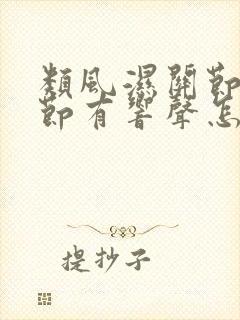 類風濕關節
節有響聲怎
提抄子